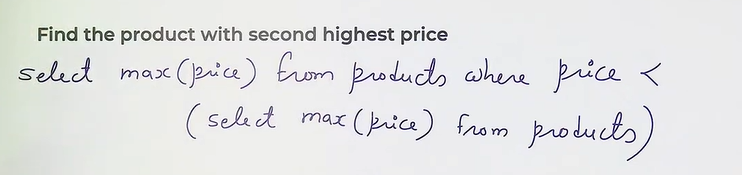 Find the product with second highest price
select max(price) from products where price <
(select max(price) from products)